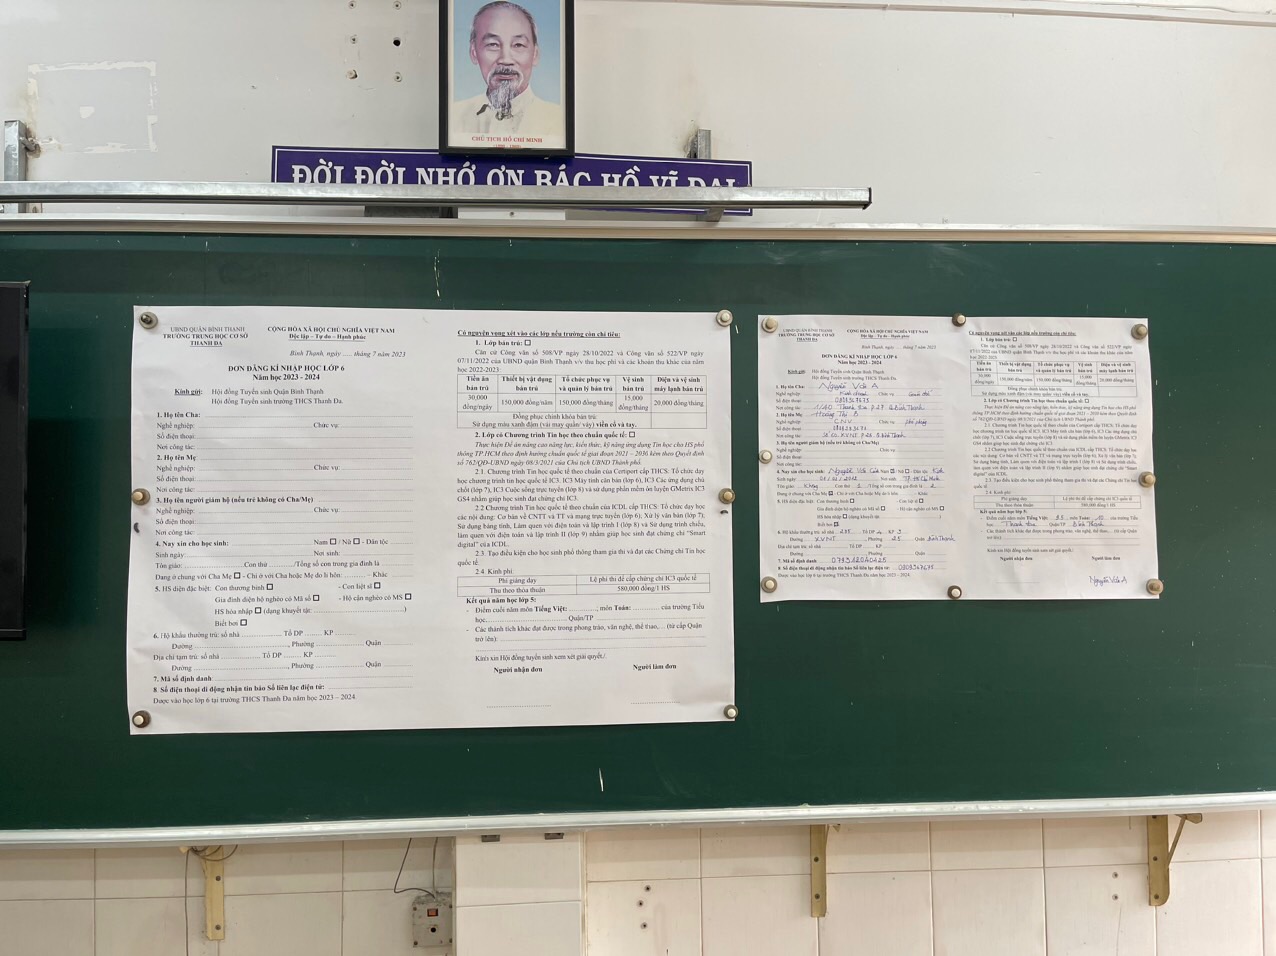 CHỦ TỊCH HỒ CHÍ MINH
ĐỜI ĐỜI NHỚ ƠN BÁC HỒ VĨ ĐẠI
UBND QUẬN BÌNH THẠNH
TRƯỜNG TRUNG HỌC CƠ SỞ
THANH ĐA
CỘNG HÒA XÃ HỘI CHỦ NGHĨA VIỆT NAM
Độc lập – Tự do – Hạnh phúc
Bình Thạnh, ngày ..... tháng 7 năm 2023
ĐƠN ĐĂNG KÍ NHẬP HỌC LỚP 6
Năm học 2023 - 2024
Kính gửi: Hội đồng Tuyển sinh Quận Bình Thạnh
Hội đồng Tuyển sinh trường THCS Thanh Đa.
1. Họ tên Cha:
Nghề nghiệp: Chức vụ:
Số điện thoại:
Nơi công tác:
2. Họ tên Mẹ
Nghề nghiệp: Chức vụ:
Số điện thoại:
Nơi công tác:
3. Họ tên người giám hộ (nếu trẻ không có Cha/Mẹ)
Nghề nghiệp: Chức vụ:
Số điện thoại:
Nơi công tác:
4. Nay xin cho học sinh: Nam □ / Nữ □ - Dân tộc
Sinh ngày: Nơi sinh:
Tôn giáo: Con thứ /Tổng số con trong gia đình là
Đang ở chung với Cha Mẹ □ - Chỉ ở với Cha hoặc Mẹ do li hôn: - Khác
5. HS diện đặc biệt: Con thương binh □ - Con liệt sĩ □
Gia đình diện hộ nghèo có Mã số □ - Hộ cận nghèo có MS □
HS hòa nhập □ (dạng khuyết tật: )
Biết bơi □
6. Hộ khẩu thường trú: số nhà Tổ DP KP
Đường , Phường Quận
Địa chỉ tạm trú: số nhà Tổ DP KP
Đường , Phường Quận
7. Mã số định danh
8. Số điện thoại di động nhận tin báo Sổ liên lạc điện tử:
Được vào học lớp 6 tại trường THCS Thanh Đa năm học 2023 – 2024.
Có nguyện vọng xét vào các lớp nếu trường còn chỉ tiêu:
1. Lớp bán trú: □
Căn cứ Công văn số 508/VP ngày 28/10/2022 và Công văn số 522/VP ngày
07/11/2022 của UBND quận Bình Thạnh v/v thu học phí và các khoản thu khác của năm
học 2022-2023:
Tiền ăn bán trú
Thiết bị vật dụng bán trú
Tổ chức phục vụ và quản lý bán trú
Vệ sinh bán trú
Điện và vệ sinh máy lạnh bán trú
30,000 đồng/ngày
150,000 đồng/năm
150,000 đồng/tháng
15,000 đồng/tháng
20,000 đồng/tháng
Đồng phục chính khóa bán trú:
Sử dụng màu xanh đậm (vải may quần/ váy) viền cổ và tay.
2. Lớp có Chương trình Tin học theo chuẩn quốc tế: □
Thực hiện Đề án nâng cao năng lực, kiến thức, kỹ năng ứng dụng Tin học cho HS phổ
thông TP HCM theo định hướng chuẩn quốc tế giai đoạn 2021 – 2030 kèm theo Quyết định
số 762/QĐ-UBND ngày 08/3/2021 của Chủ tịch UBND Thành phố.
2.1. Chương trình Tin học quốc tế theo chuẩn của Certiport cấp THCS: Tổ chức dạy
học chương trình tin học quốc tế IC3. IC3 Máy tính căn bản (lớp 6), IC3 Các ứng dụng chủ
chốt (lớp 7), IC3 Cuộc sống trực tuyến (lớp 8) và sử dụng phần mềm ôn luyện GMetrix IC3
GS4 nhằm giúp học sinh đạt chứng chỉ IC3.
2.2 Chương trình Tin học quốc tế theo chuẩn của ICDL cấp THCS: Tổ chức dạy học
các nội dung: Cơ bản về CNTT và TT và mạng trực tuyến (lớp 6); Xử lý văn bản (lớp 7);
Sử dụng bảng tính, Làm quen với điện toán và lập trình I (lớp 8) và Sử dụng trình chiếu,
làm quen với điện toán và lập trình II (lớp 9) nhằm giúp học sinh đạt chứng chỉ "Smart
digital" của ICDL.
2.3. Tạo điều kiện cho học sinh phổ thông tham gia thi và đạt các Chứng chỉ Tin học
quốc tế.
2.4. Kinh phí
Phí giảng dạy
Lệ phí thi để cấp chứng chỉ IC3 quốc tế
Thu theo thỏa thuận
580,000 đồng/1 HS
Kết quả năm học lớp 5:
- Điểm cuối năm môn Tiếng Việt: , môn Toán: của trường Tiểu
học Quận/TP
- Các thành tích khác đạt được trong phong trào, văn nghệ, thể thao,… (từ cấp Quận
trở lên):
Kính xin Hội đồng tuyển sinh xem xét giải quyết./.
Người nhận đơn Người làm đơn
UBND QUẬN BÌNH THẠNH
TRƯỜNG TRUNG HỌC CƠ SỞ
THANH ĐA
CỘNG HÒA XÃ HỘI CHỦ NGHĨA VIỆT NAM
Độc lập – Tự do – Hạnh phúc
Bình Thạnh, ngày ..... tháng 7 năm 2023
ĐƠN ĐĂNG KÍ NHẬP HỌC LỚP 6
Năm học 2023 - 2024
Kính gửi: Hội đồng Tuyển sinh Quận Bình Thạnh
Hội đồng Tuyển sinh trường THCS Thanh Đa.
1. Họ tên Cha: Nguyễn Văn A
Nghề nghiệp: Kinh doanh Chức vụ:
Số điện thoại:
Nơi công tác: Thanh Đa P.27 Q. Bình Thạnh
2. Họ tên Mẹ Hoàng Thị B
Nghề nghiệp: CNV Chức vụ:
Số điện thoại:
Nơi công tác: XVNT P.25 Q. Bình Thạnh
3. Họ tên người giám hộ (nếu trẻ không có Cha/Mẹ)
Nghề nghiệp: Chức vụ
Số điện thoại
Nơi công tác:
4. Nay xin cho học sinh: Nguyễn Văn Nam / Nữ □ - Dân tộc Kinh
Sinh ngày Nơi sinh: TP. Hồ Chí Minh
Tôn giáo: Không Con thứ 1 /Tổng số con trong gia đình là 2
Đang ở chung với Cha Mẹ - Chỉ ở với Cha hoặc Mẹ do li hôn - Khác
5. HS diện đặc biệt: Con thương binh □ - Con liệt sĩ □
Gia đình diện hộ nghèo có Mã số □ - Hộ cận nghèo có MS □
HS hòa nhập □ (dạng khuyết tật: )
Biết bơi
6. Hộ khẩu thường trú: số nhà Tổ DP KP 3
Đường XVNT , Phường 25 Quận Bình Thạnh
Địa chỉ tạm trú: số nhà Tổ DP KP
Đường , Phường Quận
7. Mã số định danh
8. Số điện thoại di động nhận tin báo Sổ liên lạc điện tử:
Được vào học lớp 6 tại trường THCS Thanh Đa năm học 2023 – 2024.
Có nguyện vọng xét vào các lớp nếu trường còn chỉ tiêu:
1. Lớp bán trú: □
2. Lớp có Chương trình Tin học theo chuẩn quốc tế: □
2.4. Kinh phí
Phí giảng dạy
Lệ phí thi để cấp chứng chỉ IC3 quốc tế
Thu theo thỏa thuận
580,000 đồng/1 HS
Kết quả năm học lớp 5:
Người nhận đơn Người làm đơn
Nguyễn Văn A